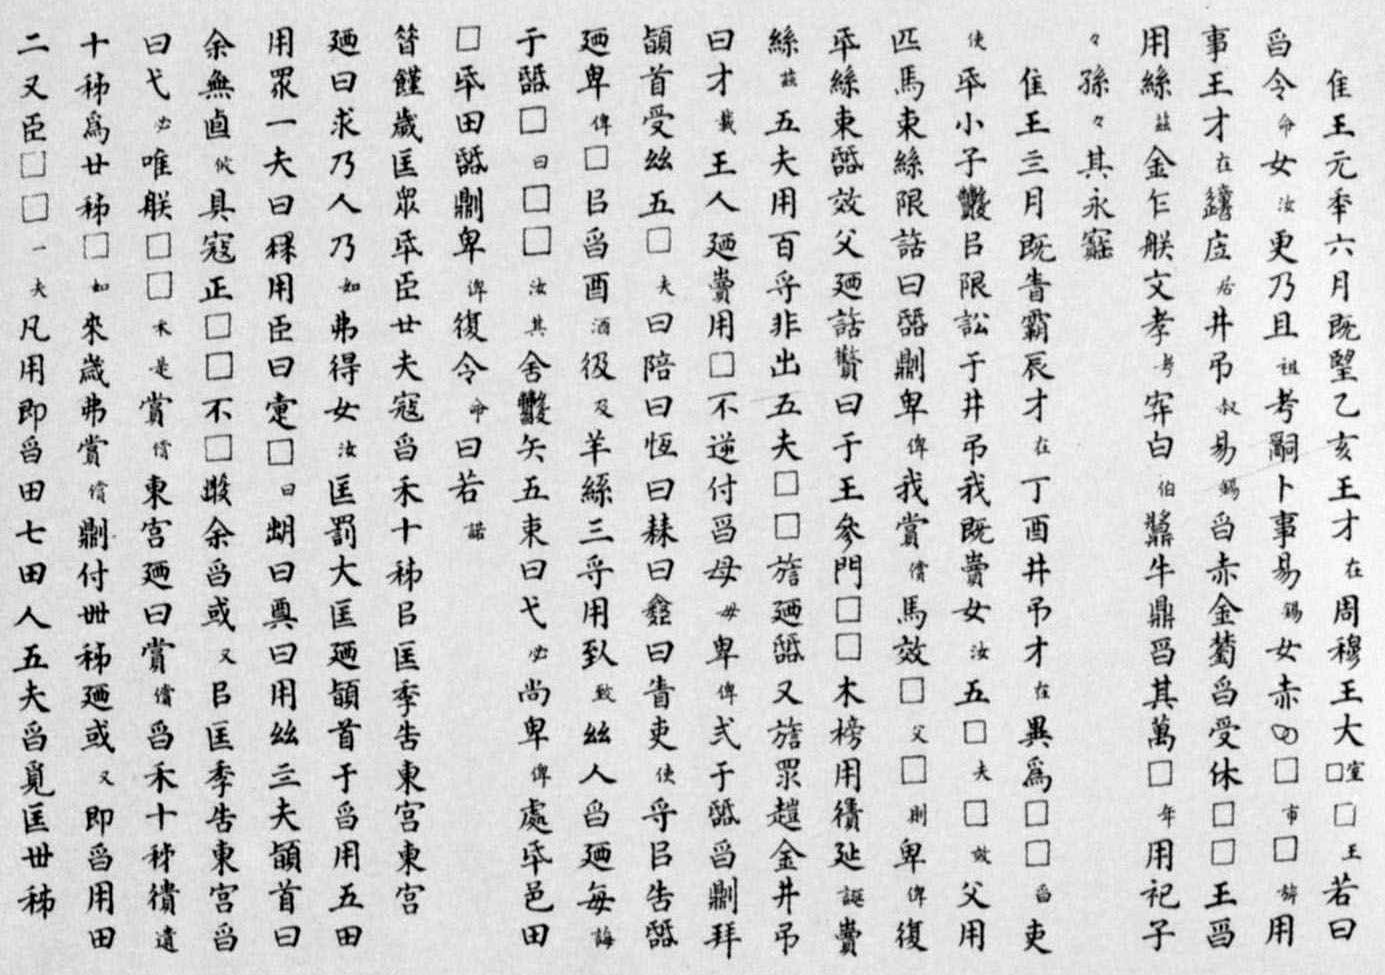 隹王元秊六月既朢乙亥王才在周穆王大□室□王若曰
曶令命女汝更乃且祖考嗣卜事易錫女汝赤□市□用
事王才在居井弔叔易錫曶赤金曶受休□□王曶
用絲茲金乍朕文孝考白伯牛鼎曶其萬□年用祀子
々孫々其永寶
隹王三月既眚霸辰才在丁酉井弔才在異爲□□曶吏
使氒小子㠯限訟于井弔我既賣女汝五□夫□效父用
匹馬束絲限誥曰䚄鼑卑俾我賞償馬效□父□則卑俾復
氒絲束䚄效父廼誥曰于王參門□□木榜用徝㢟誕賣
絲茲五夫用百寽非出五夫□□旂廼䚄又旂眔金井弔
曰才載王人廼賣用□不逆付曶母毋卑俾弍于䚄曶鼑拜
䭫首受丝五□夫曰陪曰恆曰曰曰眚吏使寽㠯告䚄
廼卑俾□㠯曶酉酒彶及羊絲三寽用致致丝人曶廼每誨
于䚄□曰□□汝其舍矢五束曰弋必尚卑俾處氒邑田
□氒田䚄鼑卑俾復令命曰若諾
昔饉歲匡眾氒臣廿夫寇曶禾十秭㠯匡季告東宮東宮
廼曰求乃人乃如弗得女汝匡罰大匡廼䭫首于曶用五田
用眾一夫曰用臣曰□曰朏曰奠曰用丝三夫䭫首曰
余無卣攸具寇正□□不□余曶或又㠯匡季告東宮曶
曰弋必唯朕□□禾是賞償東宮廼曰賞償曶禾十秭遺
十秭爲廿秭□如來歲弗賞償鼑付卌秭廼或又即曶用田
二又臣□□一夫凡用即曶田七田人五夫曶覓匡卅秭